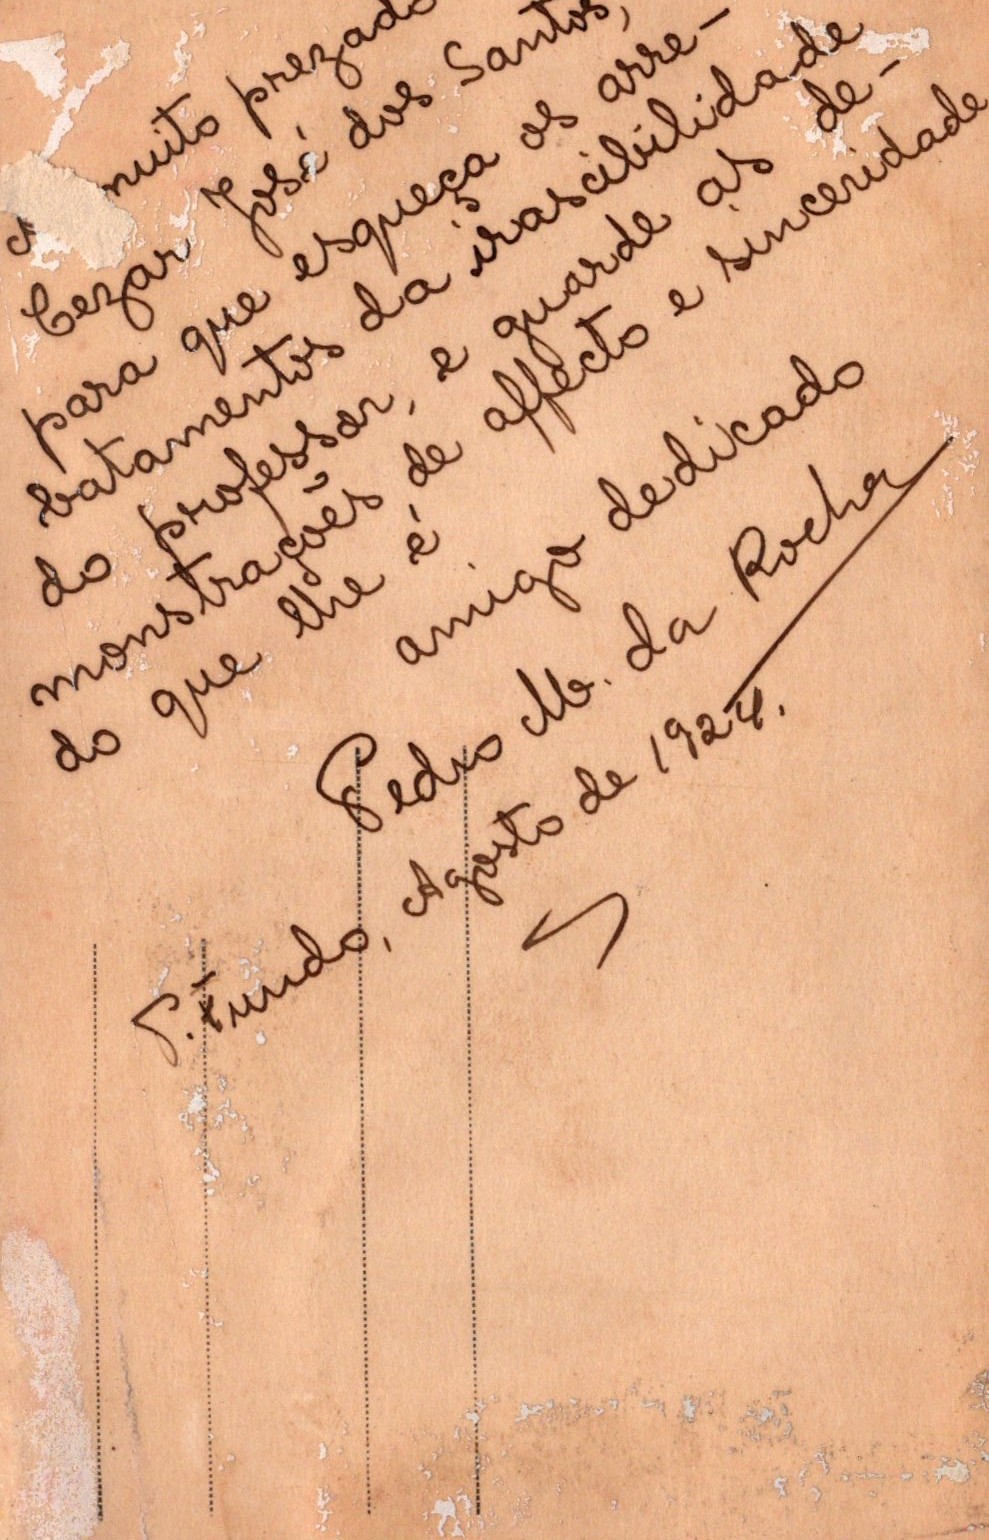 muito prezado
Cezar José dos Santos,
para que esqueça os arre-
batamentos da irascibilidade
do professor, e guarde as de-
monstrações de affecto e sinceridade
do que lhe é
amigo dedicado
Pedro M. da Rocha
P. Fundo, Agosto de 1924.